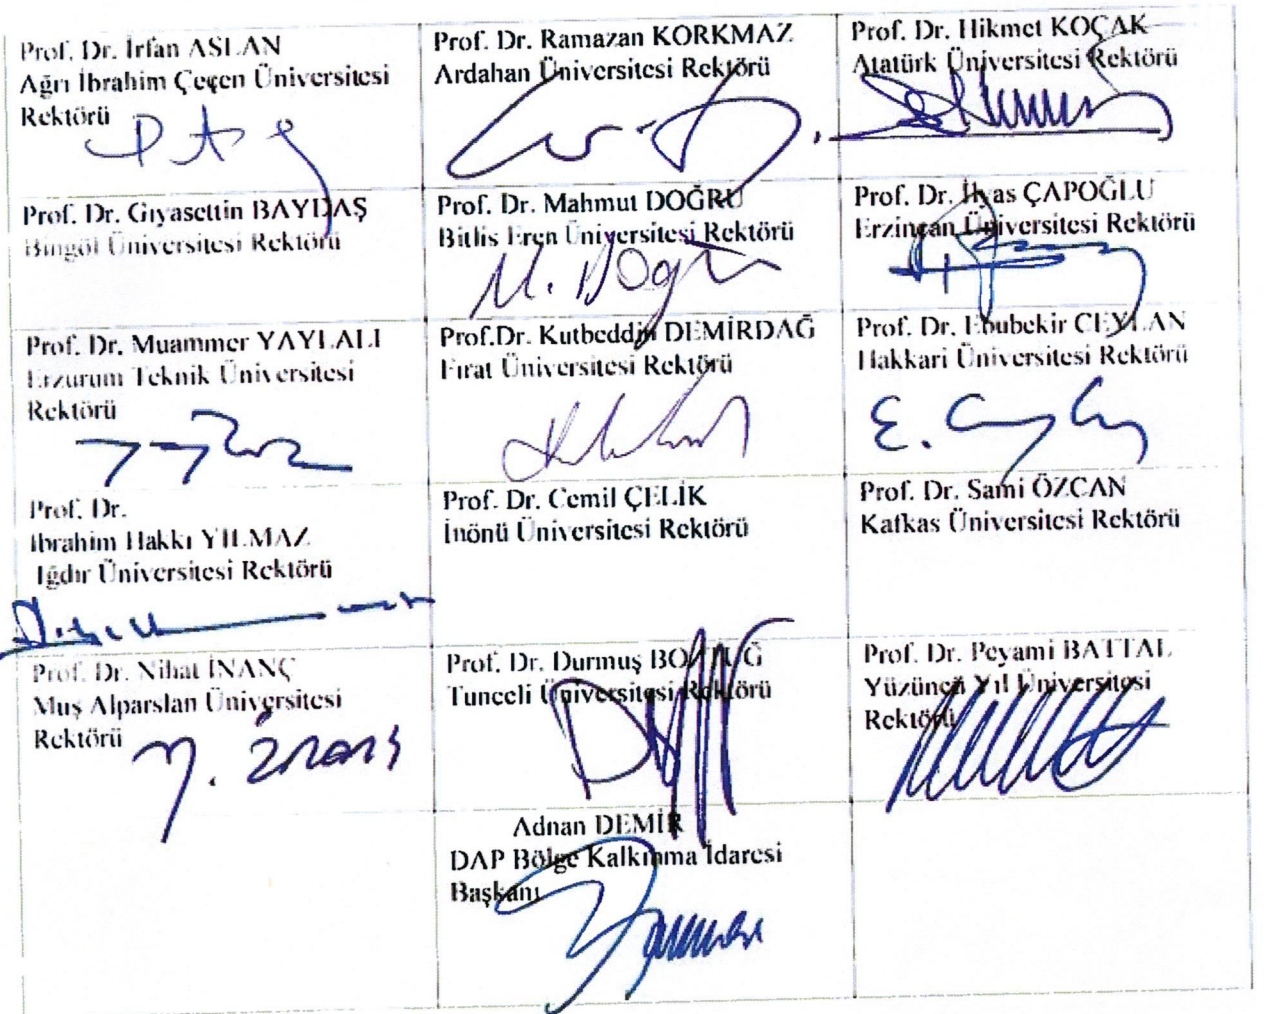 Prof. Dr. İrfan ASLAN
Ağrı İbrahim Çeçen Üniversitesi
Rektörü
Prof. Dr. Ramazan KORKMAZ
Ardahan Üniversitesi Rektörü
Prof. Dr. Hikmet KOÇAK
Atatürk Üniversitesi Rektörü
Prof. Dr. Gıyasettin BAYDAŞ
Bingöl Üniversitesi Rektörü
Prof. Dr. Mahmut DOĞRU
Bitlis Eren Üniversitesi Rektörü
M. Doğru
Prof. Dr. İlyas ÇAPOĞLU
Erzincan Üniversitesi Rektörü
Prof. Dr. Muammer YAYLALI
Erzurum Teknik Üniversitesi
Rektörü
Prof.Dr. Kutbeddin DEMİRDAĞ
Fırat Üniversitesi Rektörü
Prof. Dr. Ebubekir CEYLAN
Hakkari Üniversitesi Rektörü
Prof. Dr.
İbrahim Hakkı YILMAZ
Iğdır Üniversitesi Rektörü
Prof. Dr. Cemil ÇELİK
İnönü Üniversitesi Rektörü
Prof. Dr. Sami ÖZCAN
Kafkas Üniversitesi Rektörü
Prof. Dr. Nihat İNANÇ
Muş Alparslan Üniversitesi
Rektörü
Prof. Dr. Durmuş BOZTUĞ
Tunceli Üniversitesi Rektörü
Prof. Dr. Peyami BATTAL
Yüzüncü Yıl Üniversitesi
Rektörü
Adnan DEMİR
DAP Bölge Kalkınma İdaresi
Başkanı